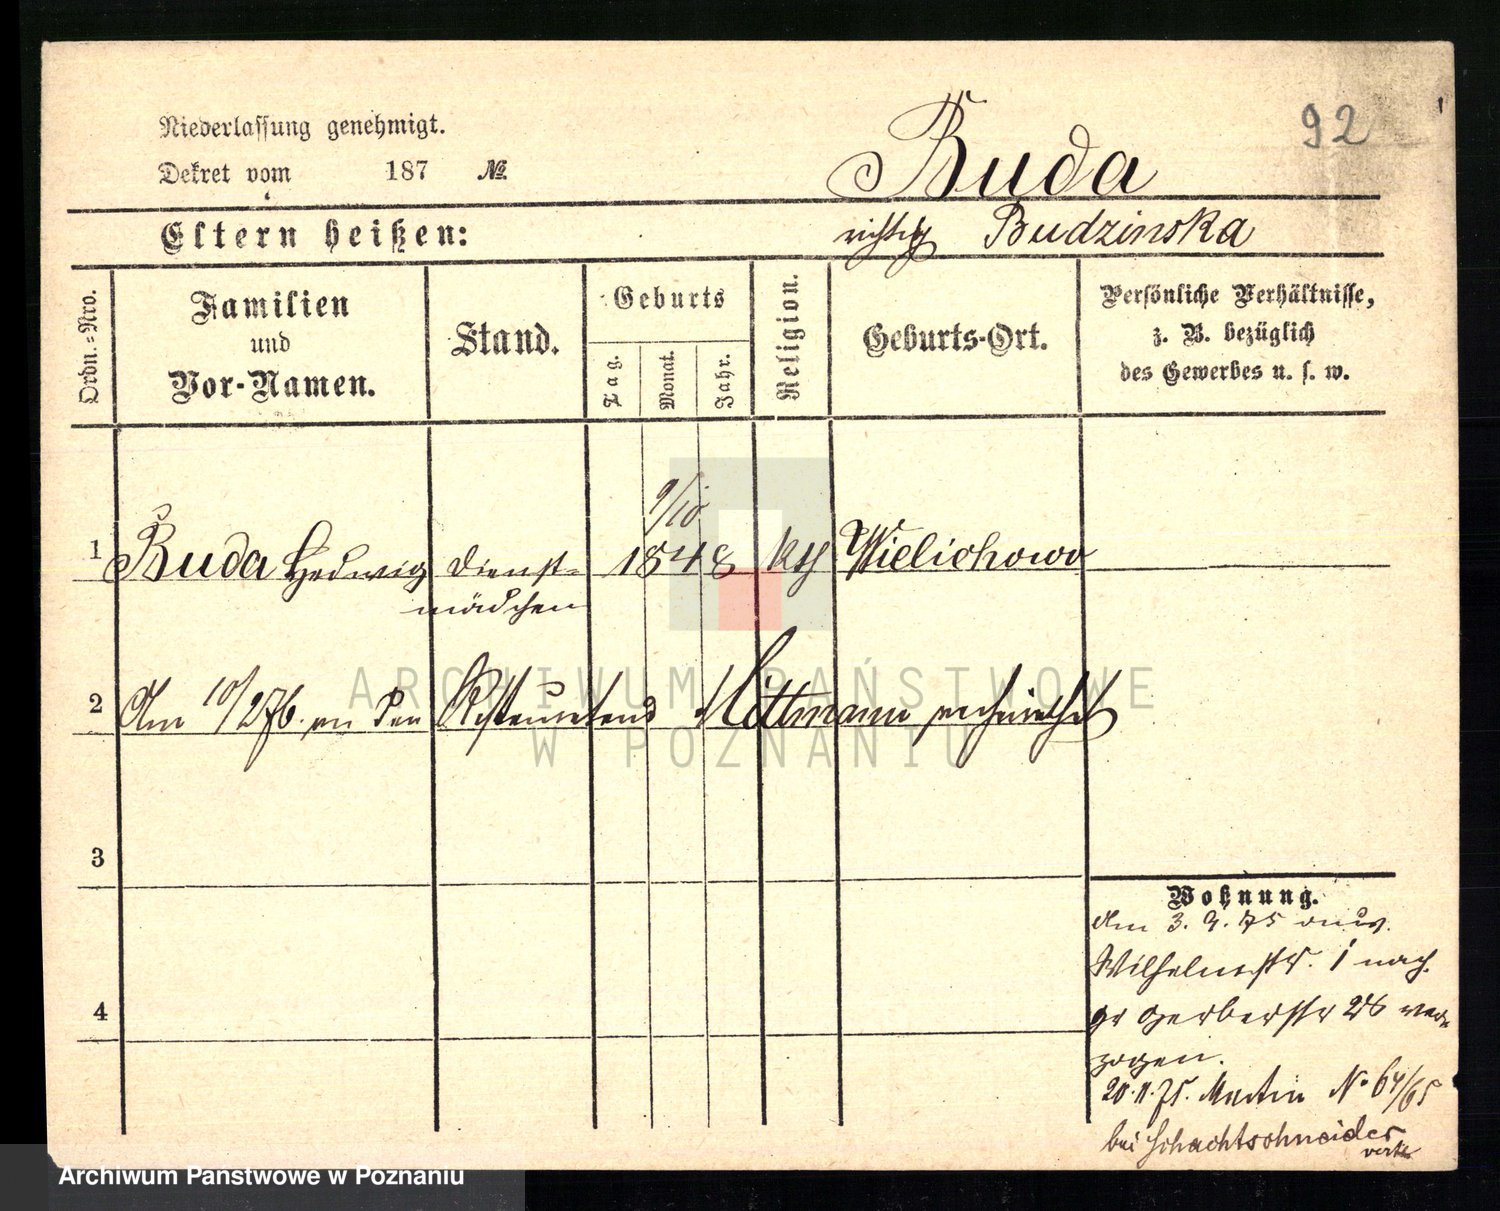 92
Niederlassung genehmigt.
Dekret vom 187 №
Buda
Eltern heißen:
richtig Budzinska
Ordn.-Nro.
Familien
und
Vor-Namen.
Stand.
Geburts
Tag.
Monat.
Jahr.
Religion.
Geburts-Ort.
Persönliche Verhältnisse,
z. B. bezüglich
des Gewerbes u. s. w.
9/10
1 Buda Hedwig Dienst- 1848 kth Wielichowo
mädchen
2 Am 10/2 76. an den Restaurateur Hittmann verheirathet
3
4
Wohnung.
Am 3. 9. 75 von
Wilhelmstr. 1 nach
gr Gerberstr 28 ver-
zogen.
20.11.75. Martin No 64/65
bei Schachtschneider
ARCHIWUM PAŃSTWOWE
W POZNANIU
Archiwum Państwowe w Poznaniu